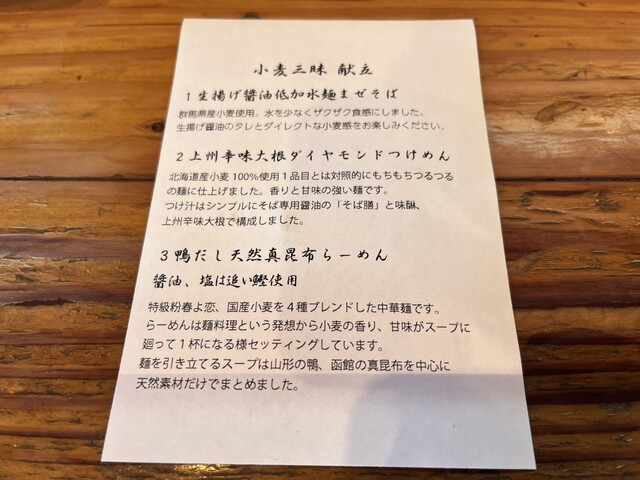 小麦三昧 献立
1生揚げ醬油低加水麺まぜそば
群馬県産小麦使用。水を少なくザクザク食感にしました。
生揚げ醤油のタレとダイレクトな小麦感をお楽しみください。
2上州辛味大根ダイヤモンドつけめん
北海道産小麦100%使用1品目とは対照的にもちもちつるつる
の麺に仕上げました。香りと甘味の強い麺です。
つけ汁はシンプルにそば専用醤油の「そば膳」と味醂、
上州辛味大根で構成しました。
3鴨だし天然真昆布らーめん
醬油、塩は追い鰹使用
特級粉春よ恋、国産小麦を4種ブレンドした中華麺です。
らーめんは麺料理という発想から小麦の香り、甘味がスープに
廻って1杯になる様セッティングしています。
麺を引き立てるスープは山形の鴨、函館の真昆布を中心に
天然素材だけでまとめました。